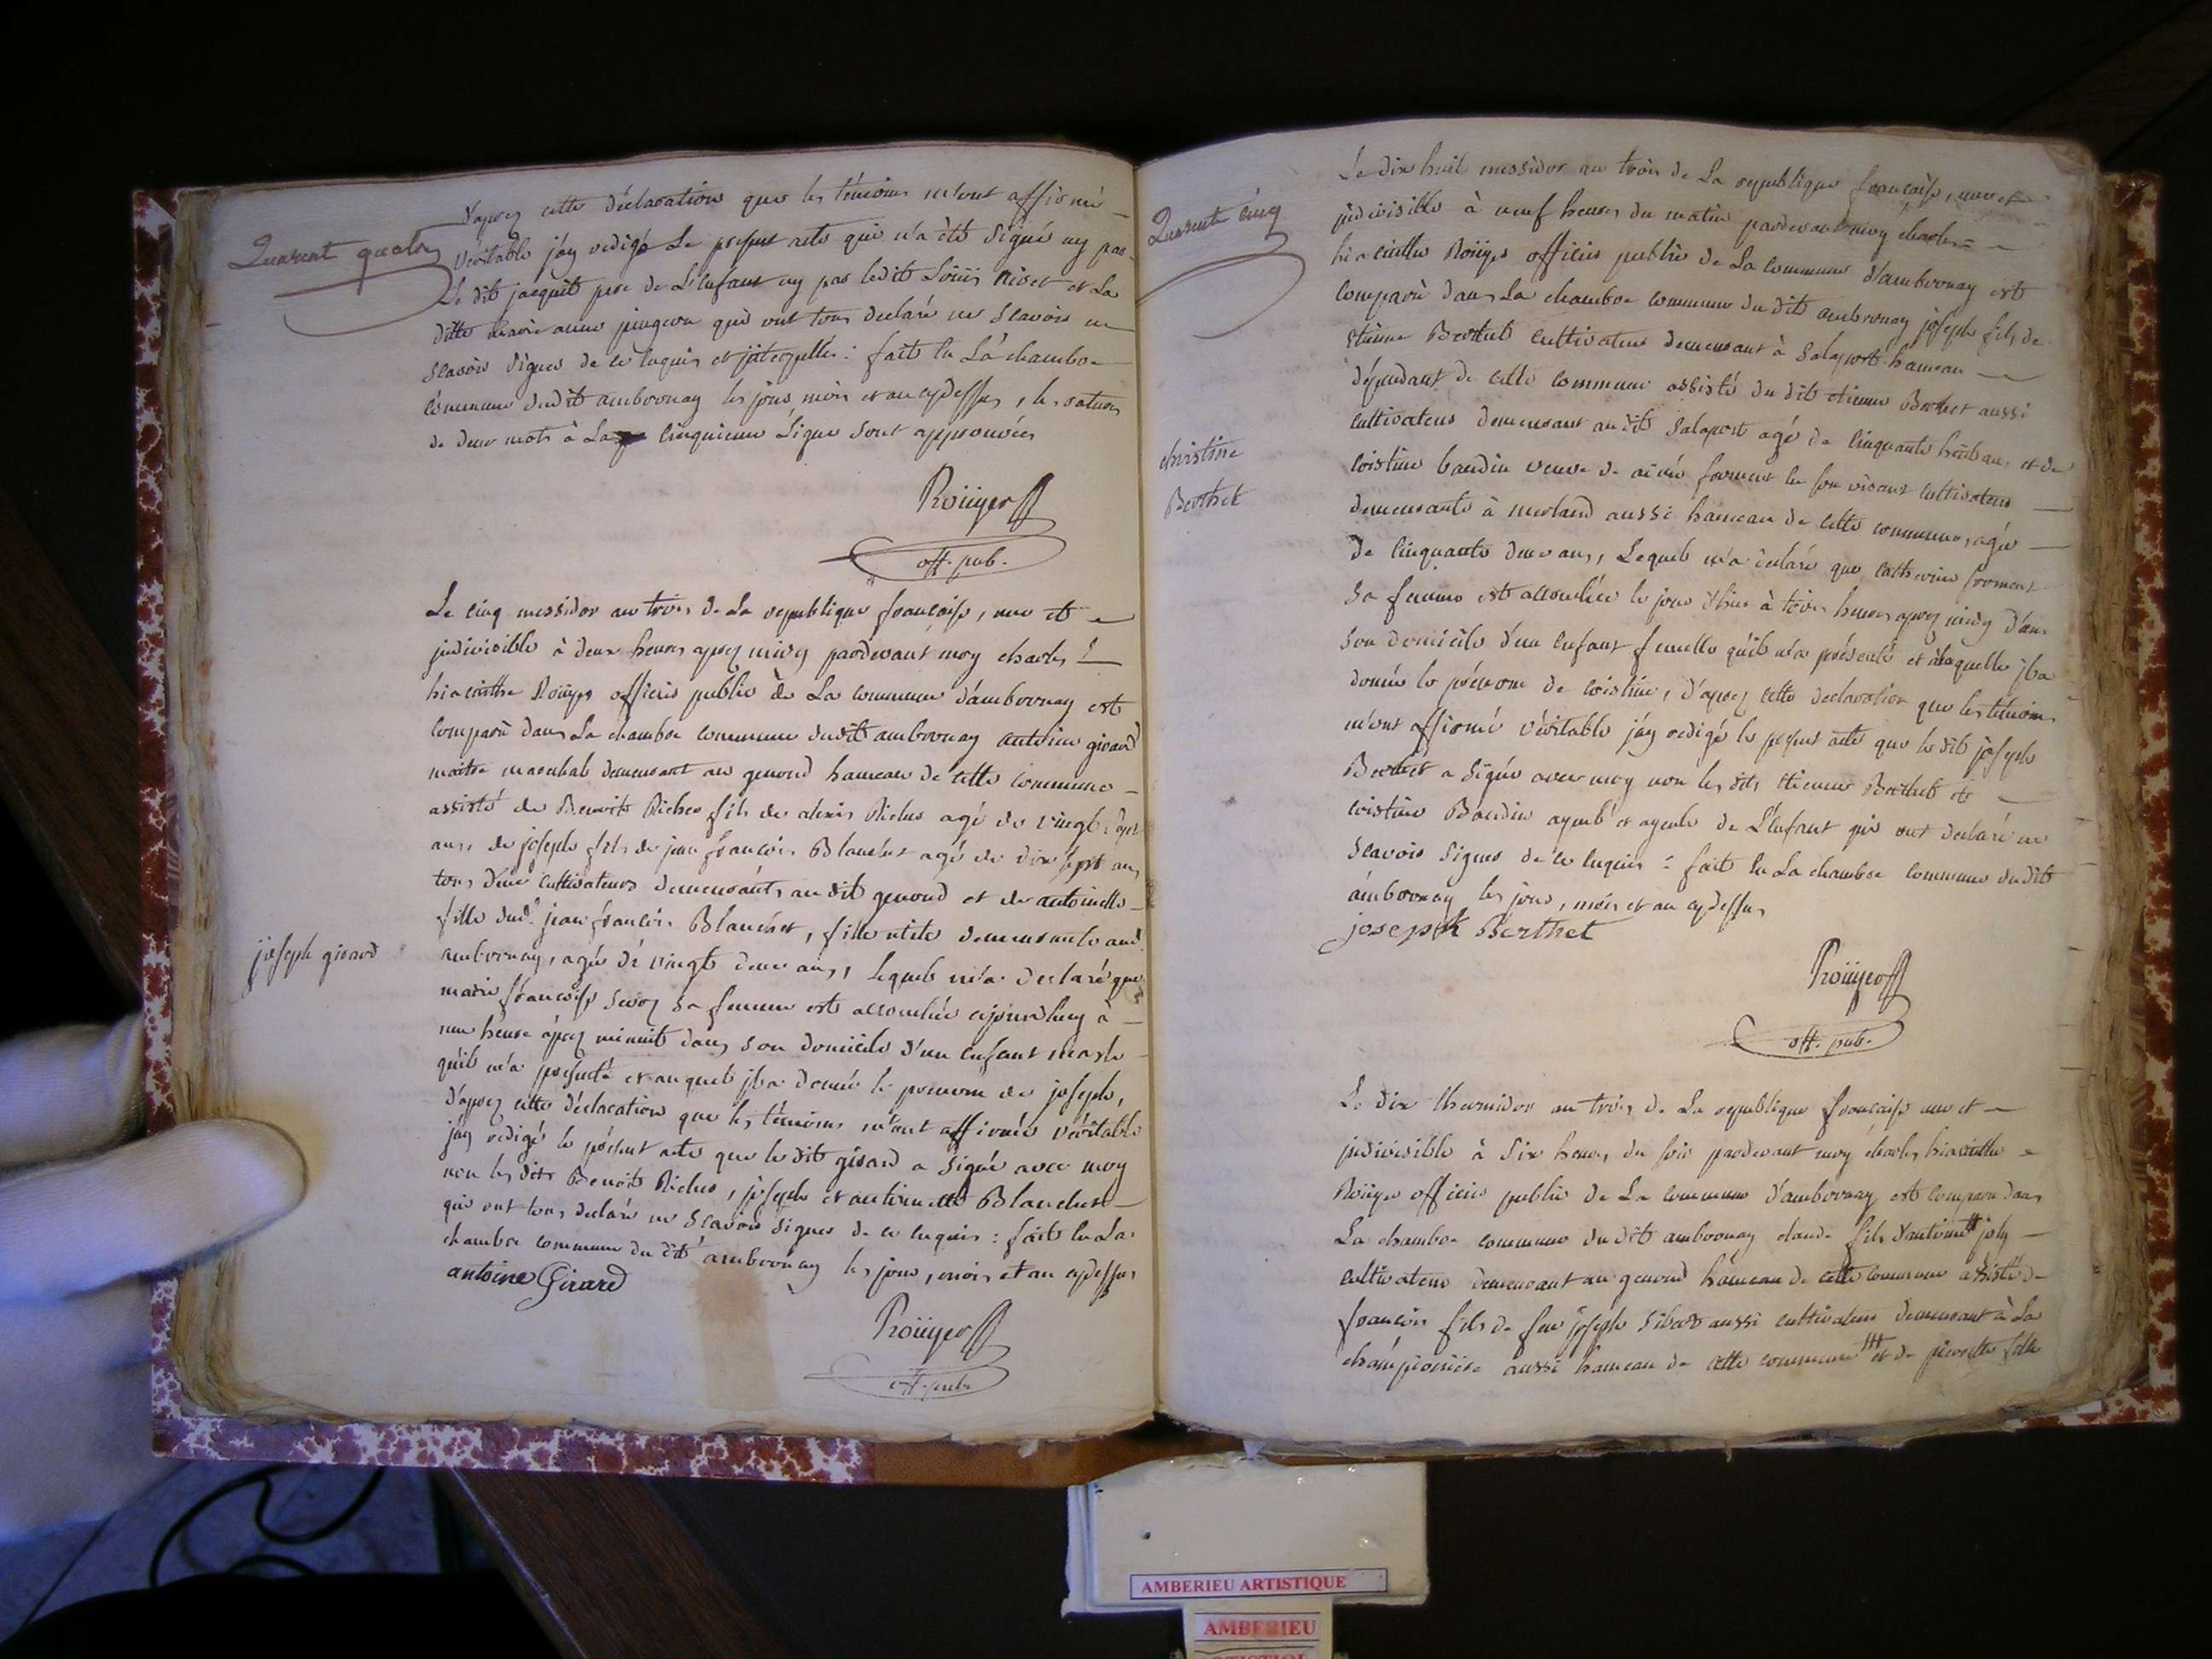 Quarent quatre
D'aprez cette déclaration que les témoins m'ont affirmé
véritable j'ay redigé Le present acte qui n'a été signé ny par
Le dit jacquit pere de L'enfant ny par ledit Loüis Nivet et La
ditte marie anne pingeon qui ont tous declaré ne scavoir
scavoir signer de ce enquis et interpellés : fait en La chambre
commune dudit ambronay les jour, mois et an cydessus, la rature
de deux mots à La cinquieme Ligne sont approuvées
Roüyer
off. pub.
Le cinq messidor an trois de La republique francaise, une et
indivisible à deux heures aprez midy pardevant moy charles
hiacinthe Roüyer officier public de La commune d'ambronay est
comparù dans La chambre commune dudit ambronay antoine girard
maitre marechal demeurant au genoud hameau de cette commune
assisté de Benoit Richer fils de alexis Richer agé de vingt sept
ans, de joseph fils de jean francois Blanchet agé de dix sept ans
tous deux cultivateurs demeurants au dit genoud et de antoinette
fille dud.t jean francois Blanchet, fille demeurante aud.
joseph girard
ambronay, agée de vingt deux ans, lequel m'a declaré que
marie francoise sa femme est accouchée aujourdhuy à
une heure aprez minuit dans son domicile d'un enfant masle
qu'il m'a presenté et auquel il a donné le prenom de joseph,
d'aprez cette déclaration que les témoins m'ont affirmée véritable
j'ay redigé le présent acte que le dit girard a signé avec moy
non les dits Benoit Richer, joseph et antoinette Blanchet
qui ont tous declaré ne scavoir signer de ce enquis : fait en La
chambre commune du dit ambronay les jour, mois et an cydessus
antoine Girard
Roüyer
off. pub.
Quarent cinq
Le dix huit messidor an trois de La republique francaise, une et
indivisible à neuf heures du matin pardevant moy charles
hiacinthe Roüyer officier public de La commune d'ambronay est
comparù dans La chambre commune du dit ambronay joseph fils de
etienne Berthet cultivateur demeurant à Salaport hameau
dépendant de cette commune assisté du dit etienne Berthet aussi
cultivateur demeurant au dit Salaport agé de cinquante huit ans, et de
christine
Berthet
cristine baudin veuve de aimé froment en son vivant cultivateur
demeurante à merland aussi hameau de cette commune, agée
de cinquante deux ans, Lequel m'a declaré que catherine froment
sa femme est accouchée le jour d'hier à trois heures aprez midy dans
son domicile d'un enfant femelle qu'il m'a présenté et àlaquelle il a
donné le prénom de cristine, d'aprez cette declaration que les témoins
m'ont affirmé véritable j'ay redigé le present acte que le dit joseph
Berthet a signé avec moy non les dits etienne Berthet et
cristine Baudin ayeul et ayeule de L'enfant qui ont declaré ne
scavoir signer de ce enquis : fait en La chambre commune du dit
ambronay les jour, mois et an cydessus
joseph Berthet
Roüyer
off. pub.
Le dix thermidor an trois de La republique francaise une et
indivisible à six heures du soir pardevant moy charles hiacinthe
Roüyer officier public de La commune d'ambronay est comparu dans
La chambre commune du dit ambronay claude fils d'antoine joly
cultivateur demeurant au genoud hameau de cette commune assisté de
francois fils de feu joseph aussi cultivateur demeurant à La
championiere aussi hameau de cette commune et de pierrette fille
AMBERIEU ARTISTIQUE
AMBERIEU